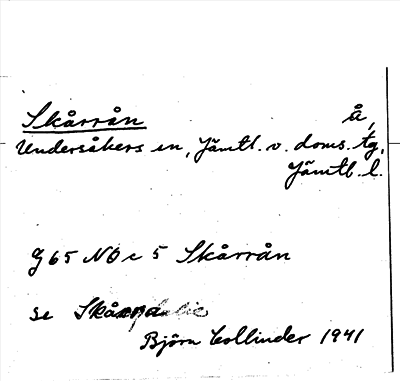 Skårrån å,
Undersåkers sn, Jämtl. v. doms. tg,
Jämtl. l.
G 65 NO c 5 Skårrån
se
Björn Collinder 1941